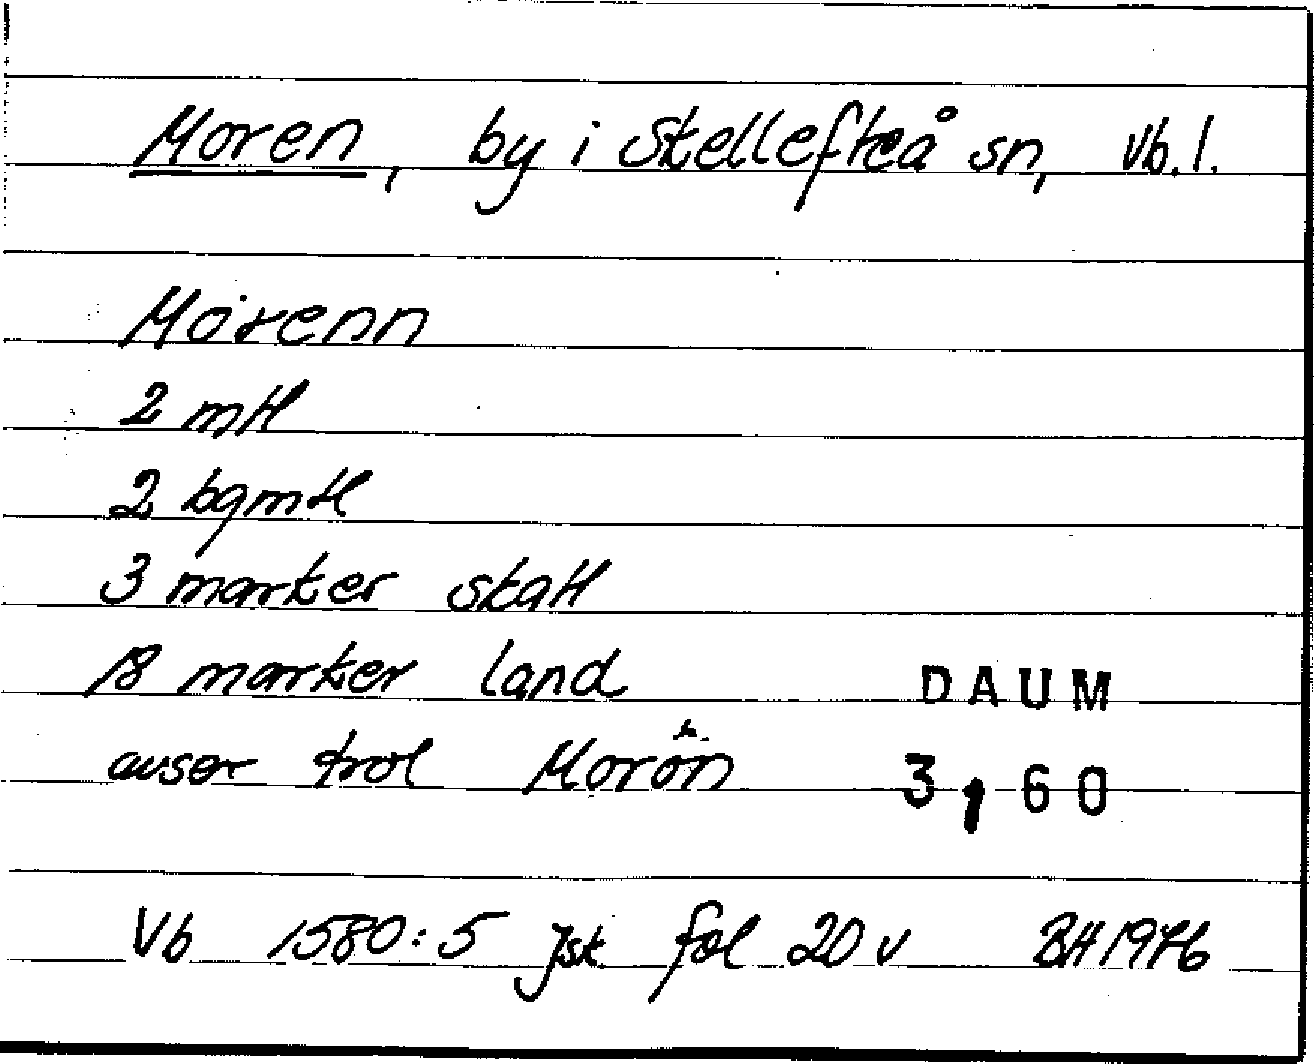 Moren, by i Skellefteå sn, Vb. l.
Mörenn
2 mtl
2 bgmtl
3 marker skatt
18 marker land
DAUM
avser trol Morön
3,60
Vb 1580:5 jsk fol 20 v BH 1976